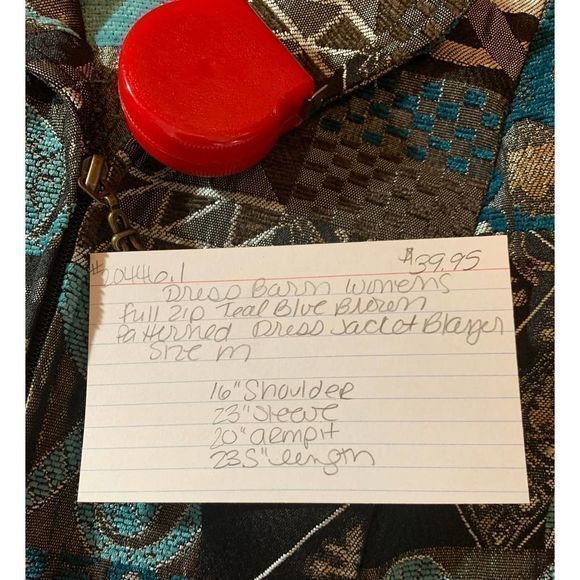 #20446.1 $39.95
Dress Barn Womens
full Zip Teal Blue Brown
Patterned Dress Jacket Blazer
Size M
16" Shoulder
23" Sleeve
20" armpit
23.5" length